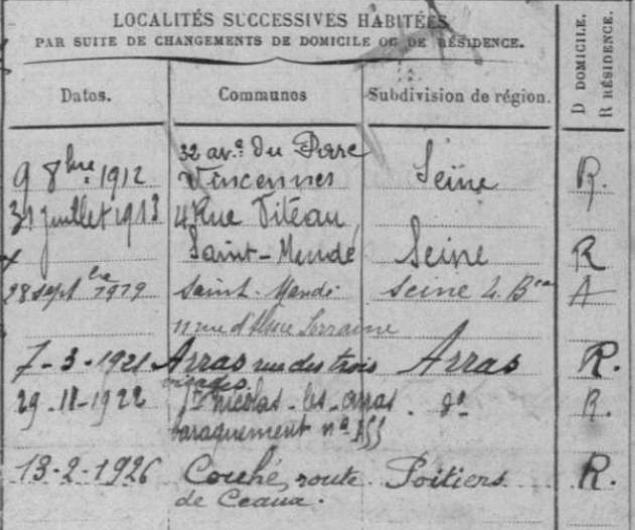 LOCALITÉS SUCCESSIVES HABITÉES
PAR SUITE DE CHANGEMENTS DE DOMICILE OU DE RÉSIDENCE.
D DOMICILE.
R RÉSIDENCE.
Dates. Communes Subdivision de région.
32 av. du Parc
9 8bre 1912 Vincennes Seine R.
31 juillet 1913 4 Rue Viteau
Saint-Mandé Seine R
28 septbre 1919 Saint-Mandé Seine 4. B
11 rue d'Alsace Lorraine
7-3-1921 Arras rue des trois Arras R.
visages
29-11-1922 St Nicolas-les-Arras. do R.
baraquement no
13-2-1926 Couhé, route Poitiers R.
de Ceaux.